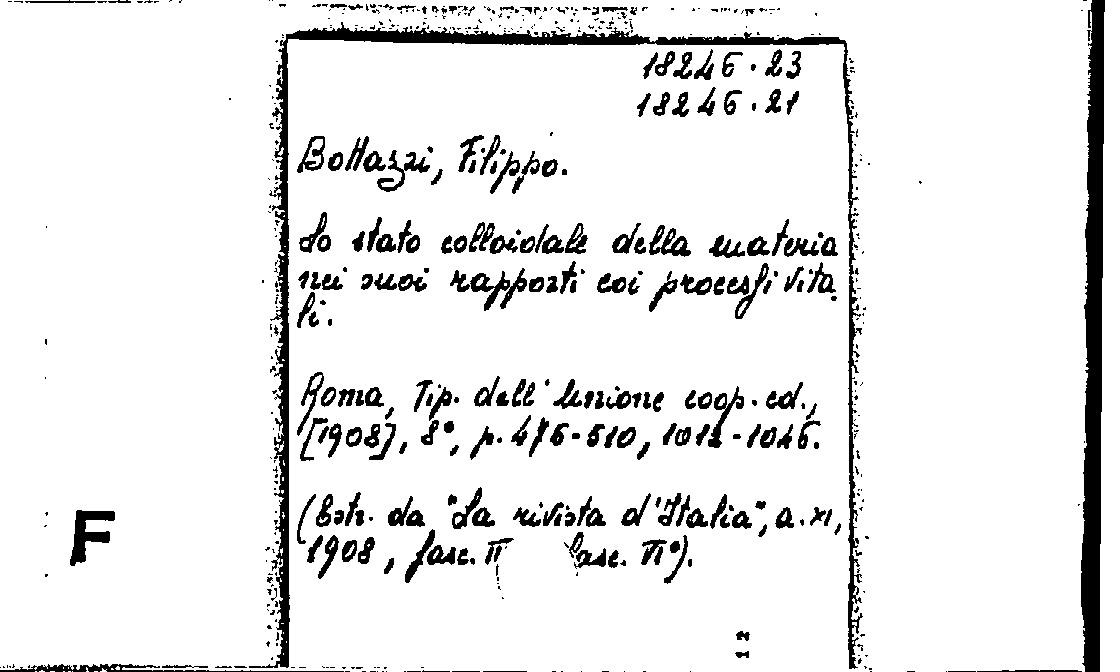 18246.23
18246.21
Bottazzi, Filippo.
Lo stato colloidale della materia
nei suoi rapporti coi processi vita
li.
Roma, Tip. dell'Unione coop. ed.,
[1908], 8°, p. 476-510, 1012-1046.
(Estr. da "La rivista d'Italia", a. XI,
1908, fasc. II fasc. VI°).
F
12